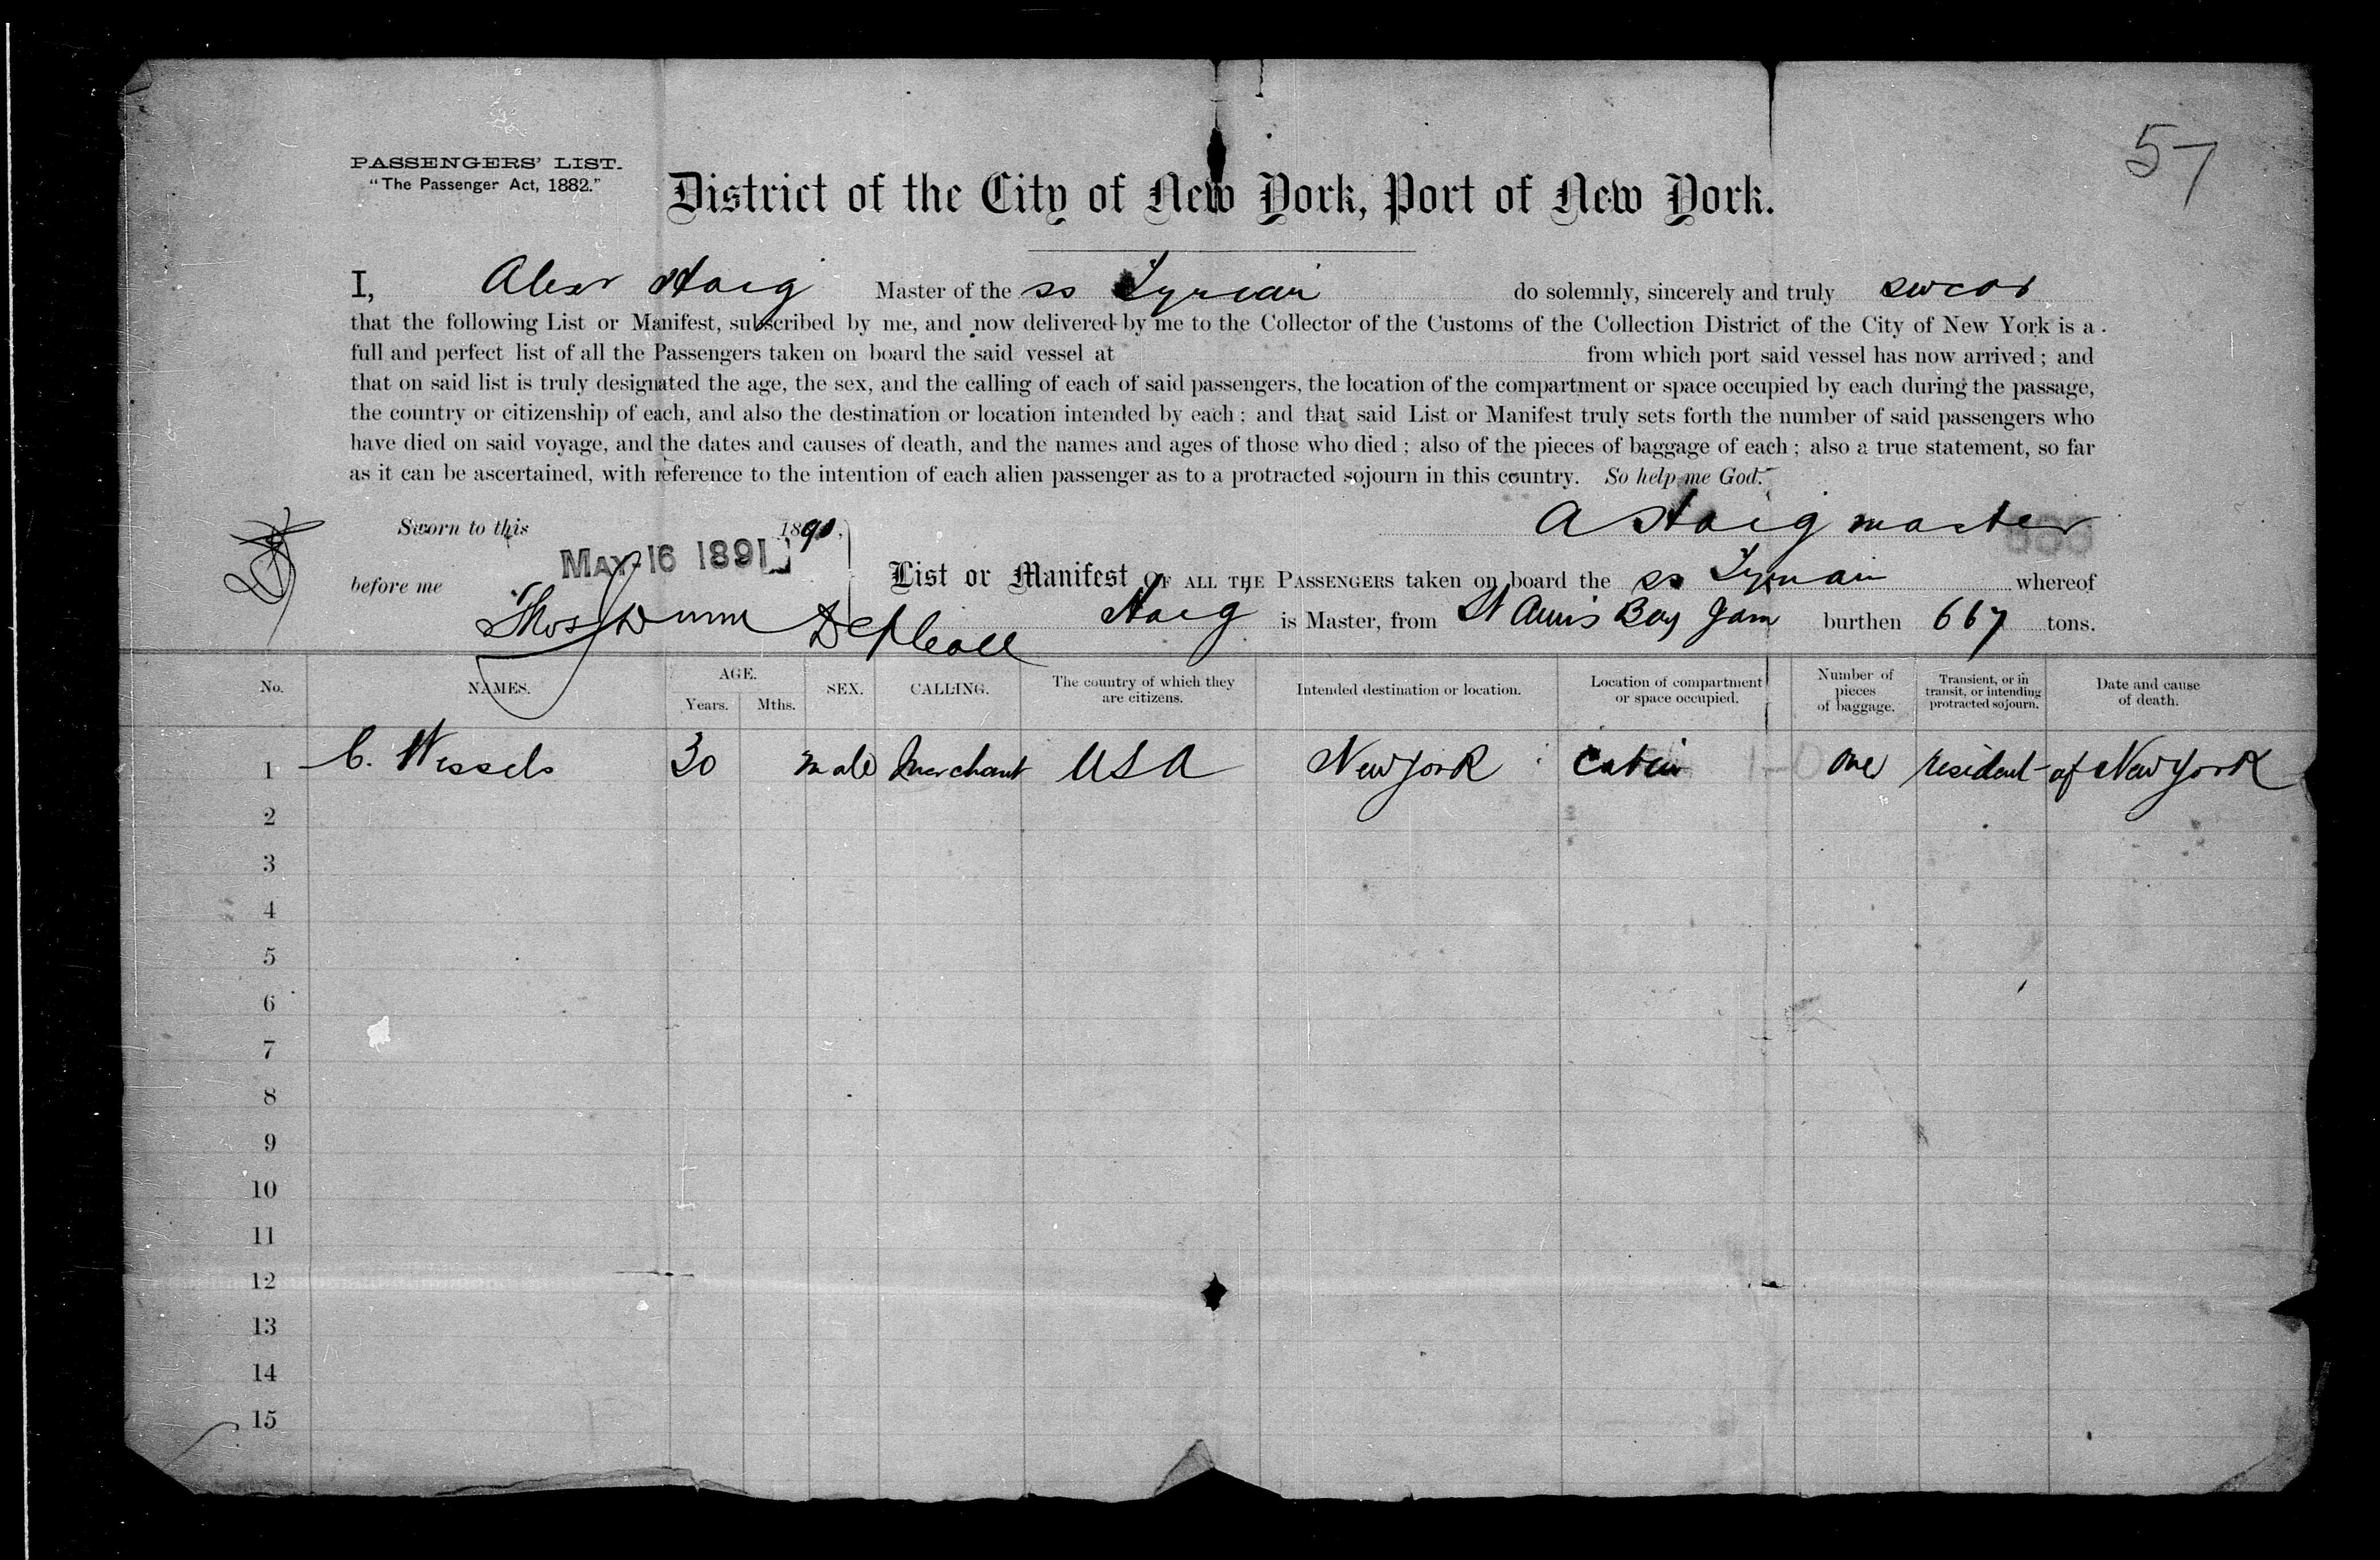 57
PASSENGERS' LIST.
"The Passenger Act, 1882."
District of the City of New York, Port of New York.
I, Alexr Haig Master of the ss Tyrian do solemnly, sincerely and truly swear
that the following List or Manifest, subscribed by me, and now delivered by me to the Collector of the Customs of the Collection District of the City of New York is a
full and perfect list of all the Passengers taken on board the said vessel at from which port said vessel has now arrived; and
that on said list is truly designated the age, the sex, and the calling of each of said passengers, the location of the compartment or space occupied by each during the passage,
the country or citizenship of each, and also the destination or location intended by each; and that said List or Manifest truly sets forth the number of said passengers who
have died on said voyage, and the dates and causes of death, and the names and ages of those who died; also of the pieces of baggage of each; also a true statement, so far
as it can be ascertained, with reference to the intention of each alien passenger as to a protracted sojourn in this country. So help me God.
A Haig master
Sworn to this 1890,
MAY 16 1891
before me Thos Dunn Dep Coll
List or Manifest OF ALL THE PASSENGERS taken on board the ss Tyrian whereof
Haig is Master, from St Anns Bay Jam burthen 667 tons.
No. NAMES. AGE. Years. Mths. SEX. CALLING. The country of which they are citizens. Intended destination or location. Location of compartment or space occupied. Number of pieces of baggage. Transient, or in transit, or intending protracted sojourn. Date and cause of death.
1 C. Wessels 30 male Merchant USA New York Cabin one resident of New York
2
3
4
5
6
7
8
9
10
11
12
13
14
15